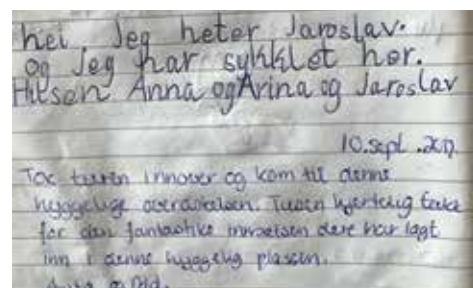 hei Jeg heter Jaroslav.
og Jeg har sykklet her.
Hilsen Anna og Arina og Jaroslav
10. sept. 20
Tok turen innover og kom til denne
hyggelige overaskelsen. Tusen hjertelig takk
for den fantastiske innsatsen dere har lagt
inn i denne hyggelig plassen.